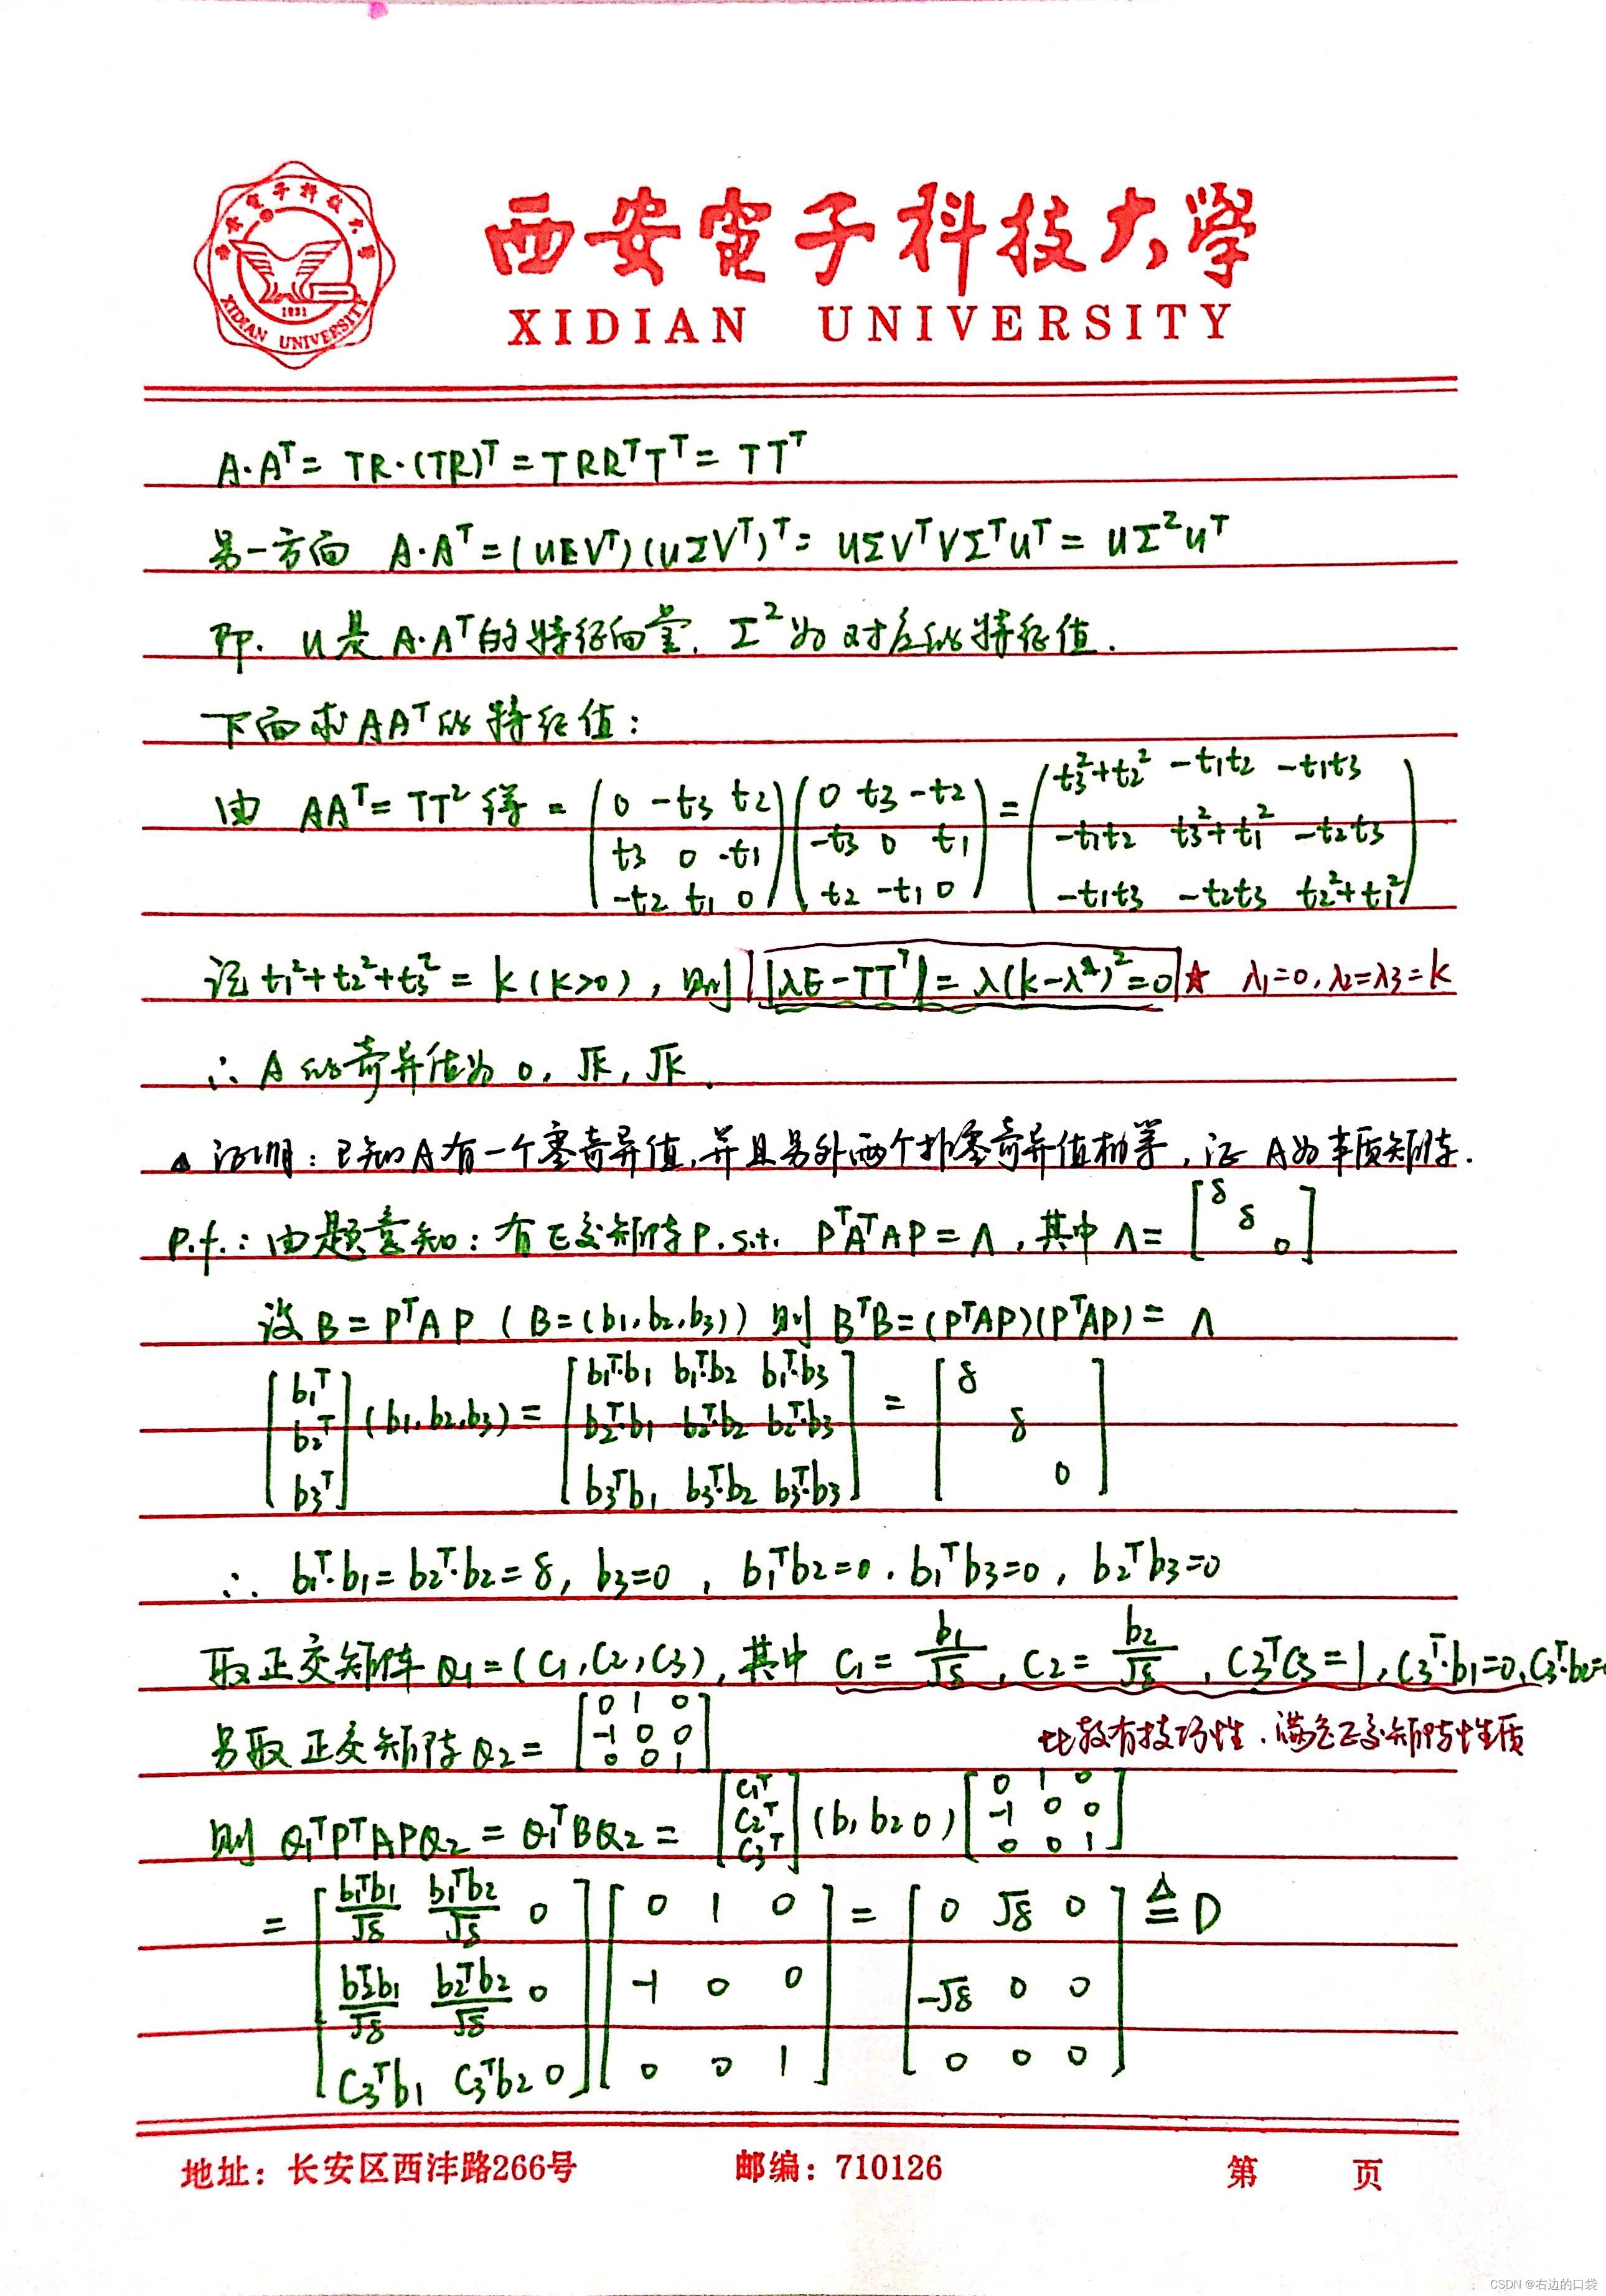 西安電子科技大學
XIDIAN UNIVERSITY
1931
XIDIAN UNIVERSITY
A·Aᵀ = TR·(TR)ᵀ = TRRᵀTᵀ = TTᵀ
另一方面 A·Aᵀ = (UΣVᵀ)(UΣVᵀ)ᵀ = UΣVᵀVΣᵀUᵀ = UΣ²Uᵀ
即. U是A·Aᵀ的特征向量. Σ²为对应的特征值.
下面求AAᵀ的特征值:
由 AAᵀ = TT² 得 = (0 -t3 t2; t3 0 -t1; -t2 t1 0)(0 t3 -t2; -t3 0 t1; t2 -t1 0) = (t3²+t2² -t1t2 -t1t3; -t1t2 t3²+t1² -t2t3; -t1t3 -t2t3 t2²+t1²)
记 t1²+t2²+t3² = k (k>0), 则 |λE-TTᵀ| = λ(k-λ)² = 0 ★ λ1=0, λ2=λ3=k
∴ A的奇异值为 0, √k, √k.
▲ 证明: 已知A有一个零奇异值, 并且另外两个非零奇异值相等, 证 A为本质矩阵.
P.f.: 由题意知: 有正交矩阵P. s.t. PᵀAᵀAP = Λ, 其中 Λ = [δ δ 0]
设 B = PᵀAP (B=(b1,b2,b3)) 则 BᵀB = (PᵀAP)(PᵀAP) = Λ
[b1ᵀ; b2ᵀ; b3ᵀ](b1,b2,b3) = [b1ᵀ·b1 b1ᵀ·b2 b1ᵀ·b3; b2ᵀ·b1 b2ᵀ·b2 b2ᵀ·b3; b3ᵀb1 b3ᵀ·b2 b3ᵀ·b3] = [δ δ 0]
∴ b1ᵀ·b1 = b2ᵀ·b2 = δ, b3=0, b1ᵀb2=0. b1ᵀb3=0, b2ᵀb3=0
取正交矩阵 Q1 = (C1,C2,C3), 其中 C1 = b1/√δ, C2 = b2/√δ, C3ᵀC3 = 1, C3ᵀ·b1=0, C3ᵀ·b2=
另取正交矩阵Q2 = [0 1 0; -1 0 0; 0 0 1]
比较有技巧性. 满足正交矩阵性质
则 Q1ᵀPᵀAPQ2 = Q1ᵀBQ2 = [C1ᵀ; C2ᵀ; C3ᵀ](b1 b2 0)[0 1 0; -1 0 0; 0 0 1]
= [b1ᵀb1/√δ b1ᵀb2/√δ 0; b2ᵀb1/√δ b2ᵀb2/√δ 0; C3ᵀb1 C3ᵀb2 0][0 1 0; -1 0 0; 0 0 1] = [0 √δ 0; -√δ 0 0; 0 0 0] ≜ D
地址: 长安区西沣路266号 邮编: 710126 第 页
CSDN @右边的口袋